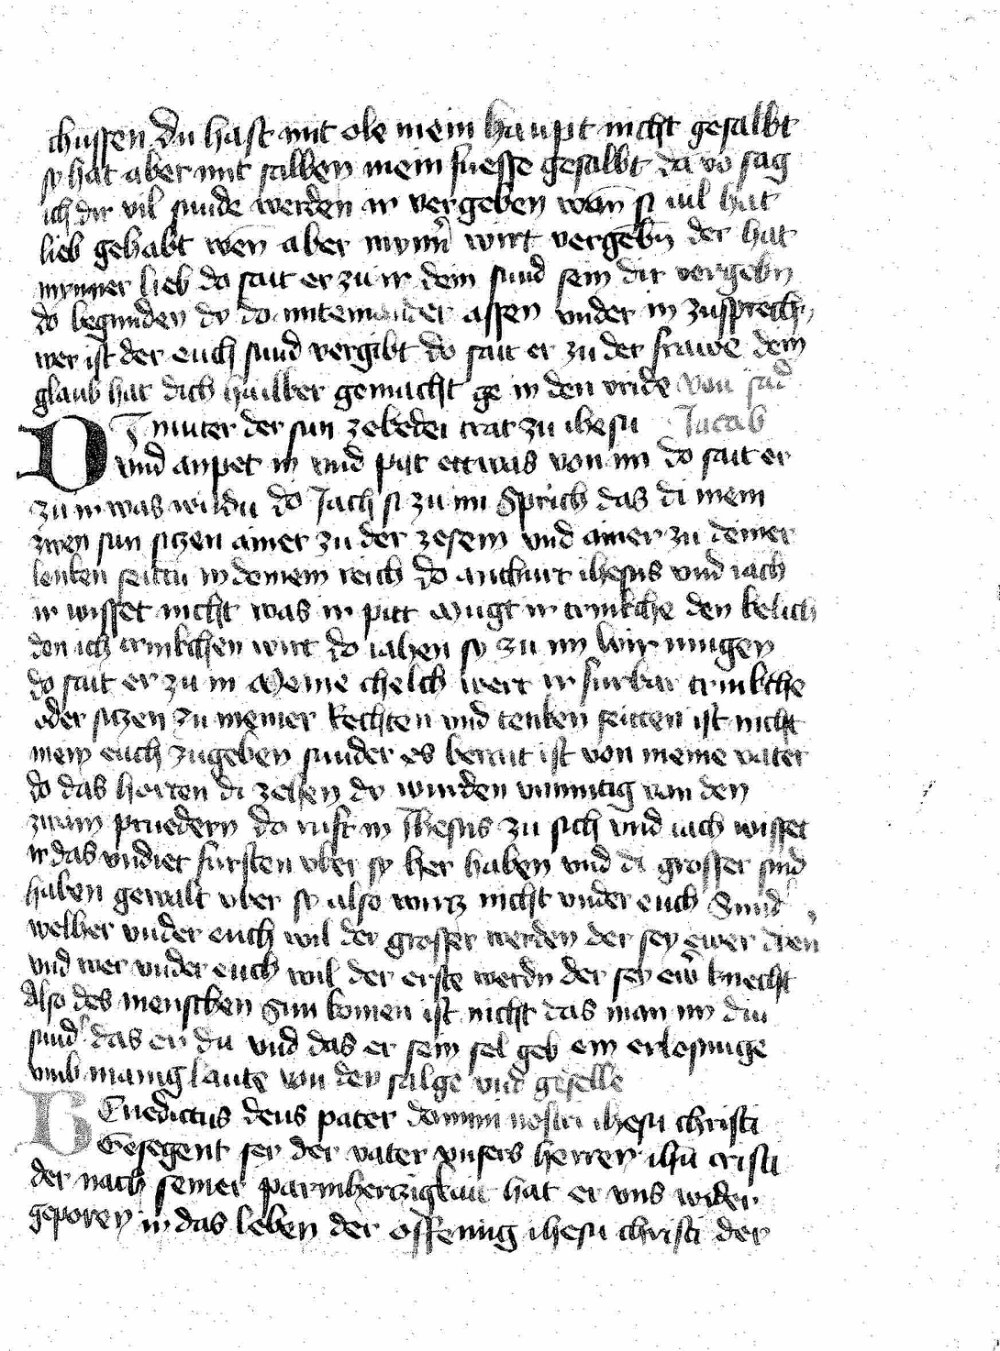 chussen du hast mit ole mein haupt nicht gesalbt
sy hat aber mit salben mein fuesse gesalbt da vō sag
ich dir vil sunde werden ir vergeben wān si vil hat
lieb gehabt wen aber mynn̄ wirt vergebn̄ der hat
mynner lieb do sait er zu ir dein sund sein dir vergebn
do begunden dy do miteinander assen under in zusprechn
wer ist der euch sund vergibt do sait er zu der frawe dein
glaub hat dich hailber gemacht ge in den vride von sād
Di muter der sun zebedei trat zu ihesu Jacob
vnd anpet in vnd pat ettwas von im do sait er
zu ir was wildu do Jach si zu im Sprich das di mein
zwen sun sitzen ainer zu der zesem vnd ainer zu deiner
lenken seitten in deinem reich do antburt ihesus vnd iach
ir wisset nicht was ir pitt Mugt ir trinkche den kelich
den ich trinkchen wirt do iahen sy zu im wir mugen
do sait er zu in Meine chelch wert ir furbar trinkche
oder sitzen zu meiner Rechten vnd lenken seitten ist nicht
mein euch zugeben sunder es berait ist von meine vater
do das horten di zehen dy wurden vnmutig von den
zwain pruedern do ruft in Ihesus zu sich vnd iach wisset
ir das vndiet fursten vber sy her haben vnd di grosser sind
haben gewalt vber sy also wirtz nicht vnder euch Sund
welher vnder euch wil der grosser werden der sey ewer dien
vnd wer vnder euch wil der erste werdn der sey ew̄ knecht
Also des menschen Sun komen ist nicht das man im din
sund das er din vnd das er sein sel geb ein erlosunge
vmb manig laute von den salge vnd geselle
Benedictus deus pater domini nostri ihesu christi
Gesegent sey der vater vnsers herren ihū cristi
der nach seiner parmhertzigkait hat er vns wider
geporen in das leben der offenung ihesu christi der